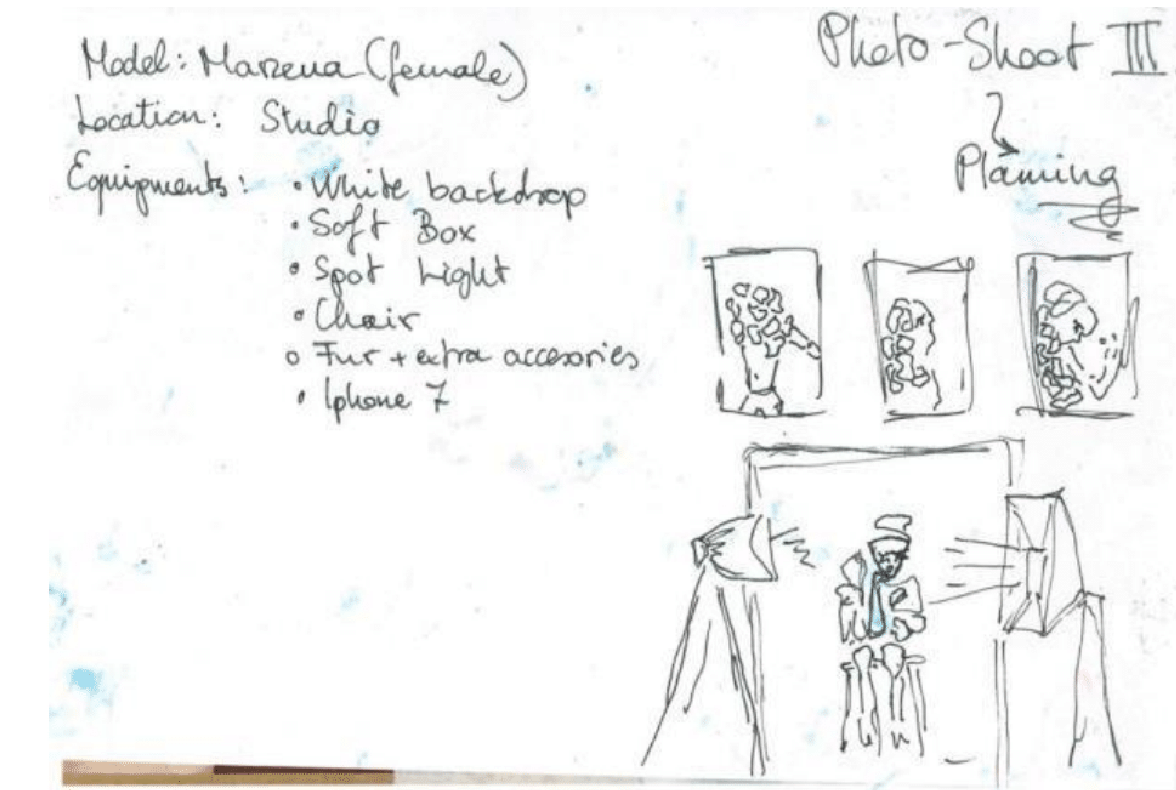 Photo-Shoot III
Planning
Model: Marena (female)
Location: Studio
Equipments:
• White backdrop
• Soft Box
• Spot Light
• Chair
• Fur + extra accesories
• Iphone 7